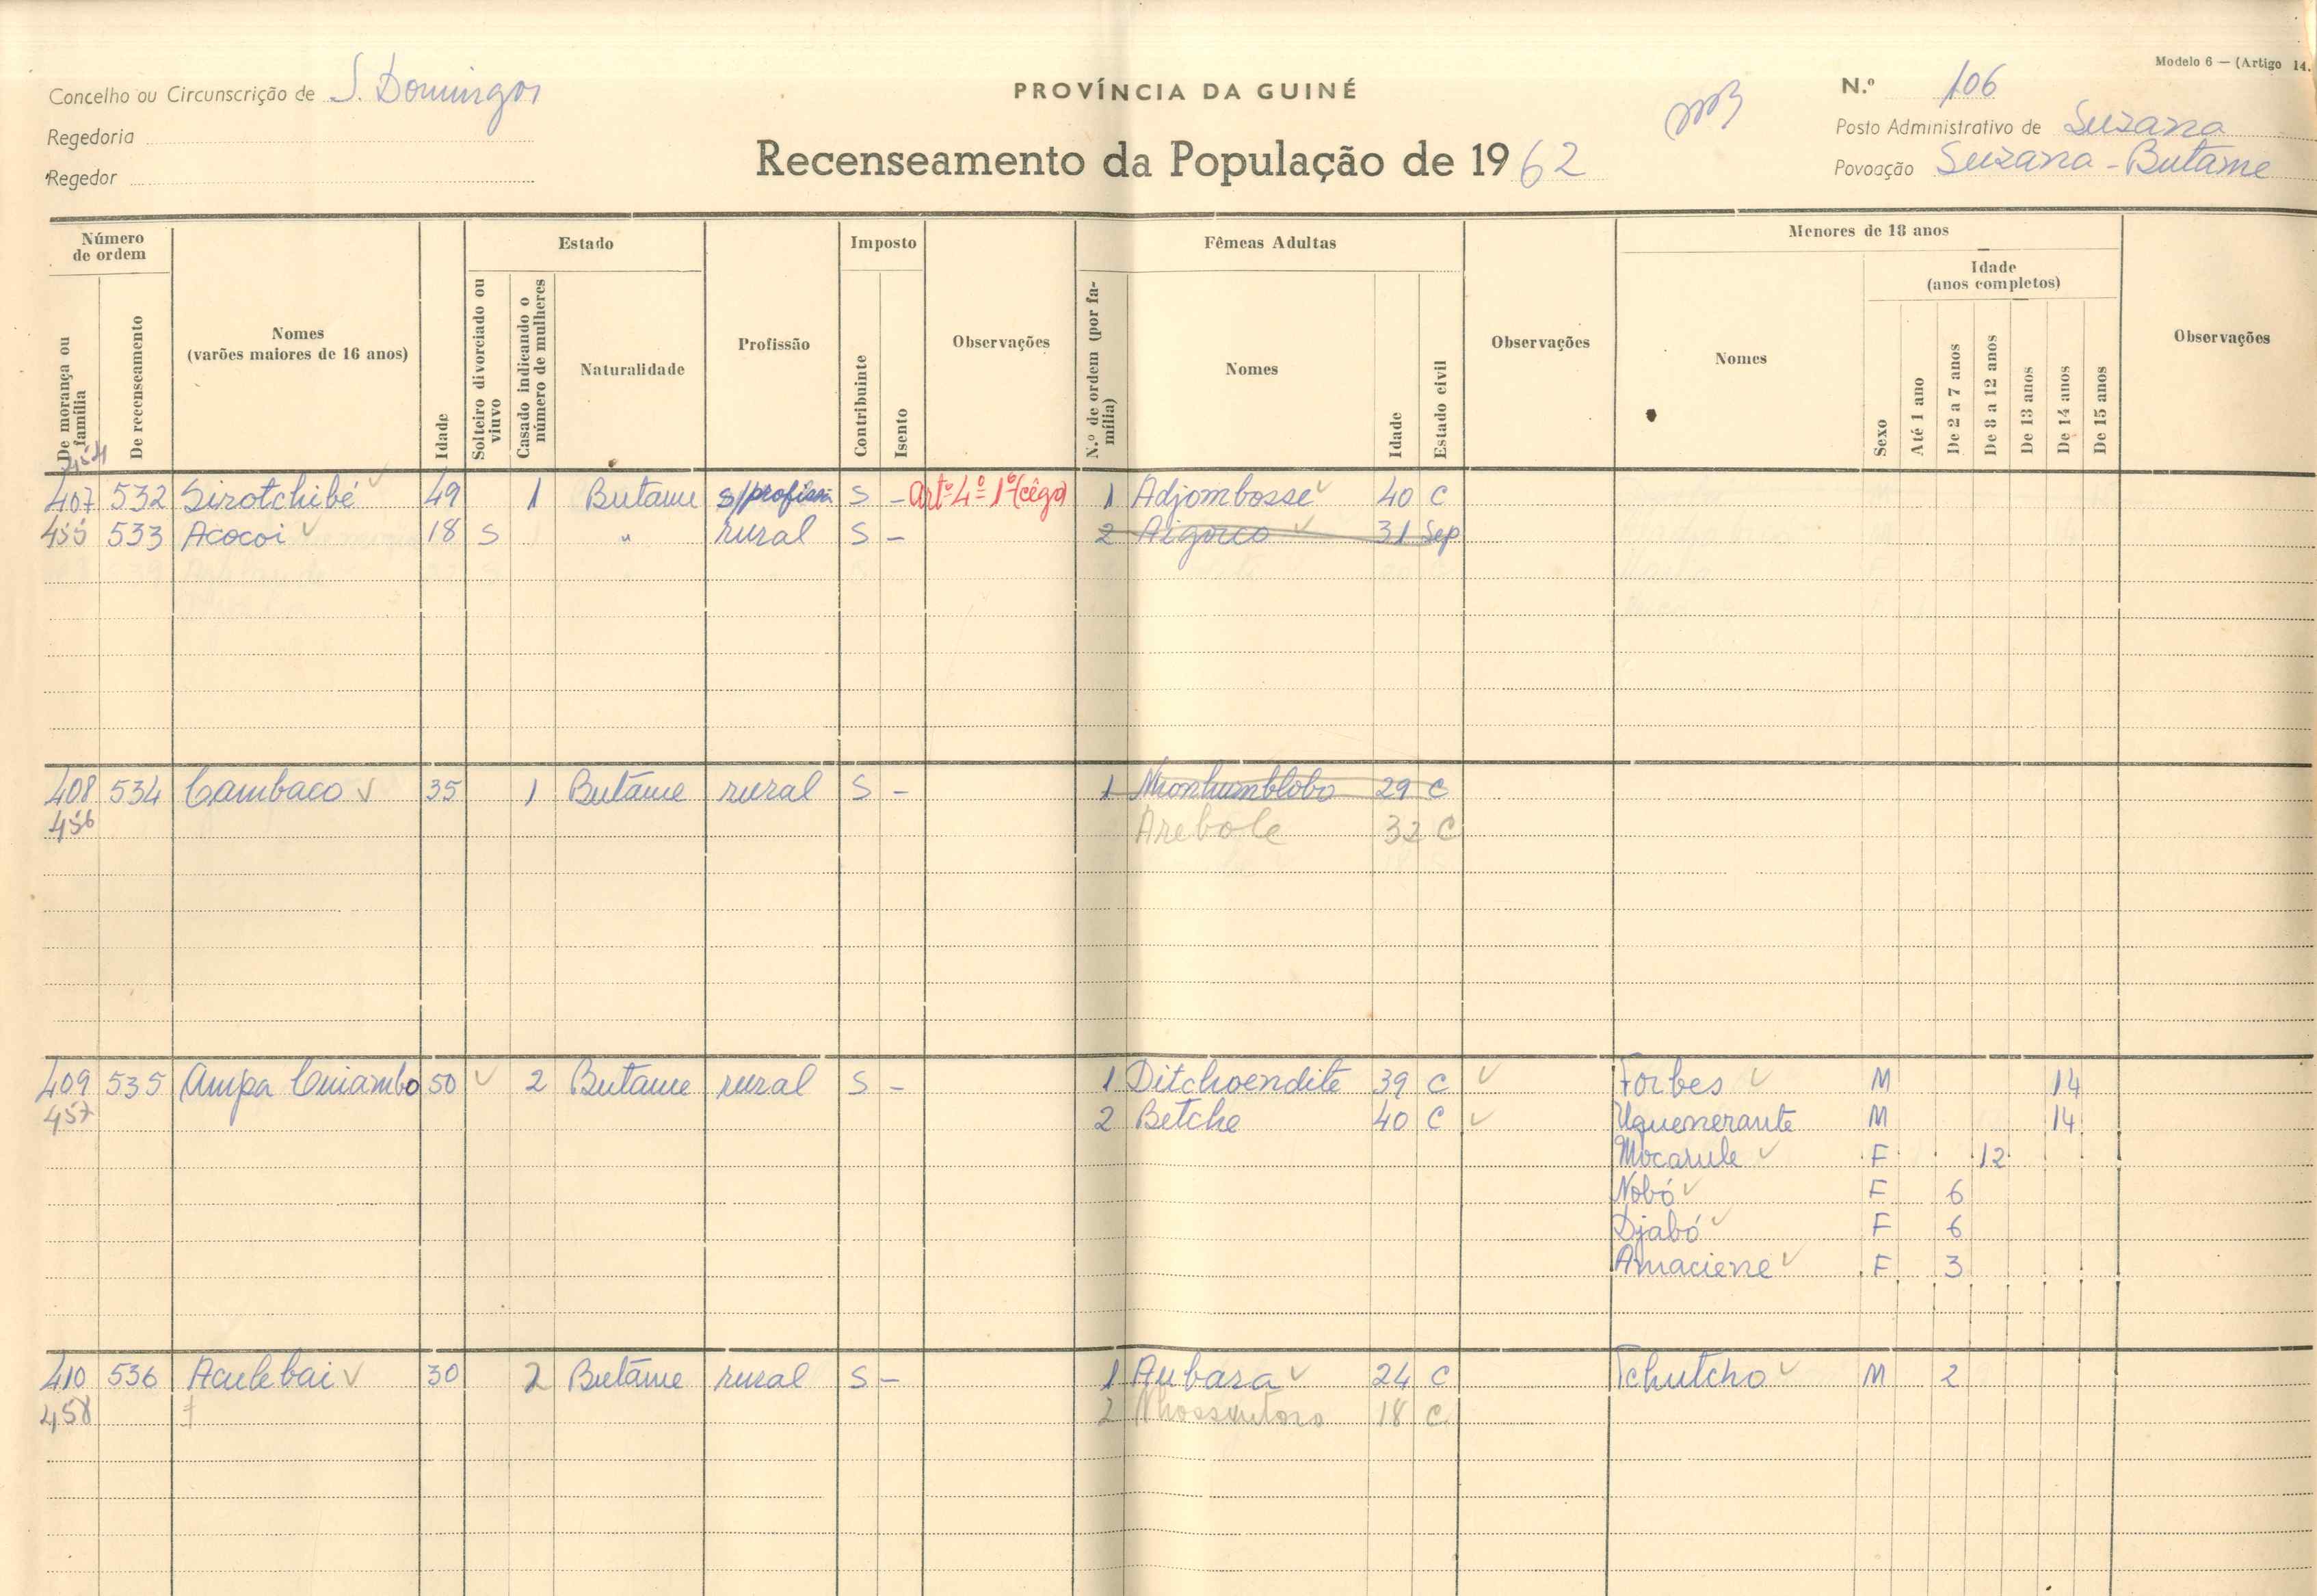 Modelo 6 — (Artigo 14.
Concelho ou Circunscrição de S. Domingos
PROVÍNCIA DA GUINÉ
N.º 106
Regedoria
Posto Administrativo de Suzana
Regedor
Recenseamento da População de 1962
Povoação Suzana - Butame
Número de ordem
De morança ou família
De recenseamento
Nomes
(varões maiores de 16 anos)
Idade
Estado
Solteiro divorciado ou viuvo
Casado indicando o número de mulheres
Naturalidade
Profissão
Imposto
Contribuinte
Isento
Observações
Fêmeas Adultas
N.º de ordem (por família)
Nomes
Idade
Estado civil
Observações
Menores de 18 anos
Nomes
Sexo
Idade
(anos completos)
Até 1 ano
De 2 a 7 anos
De 8 a 12 anos
De 13 anos
De 14 anos
De 15 anos
Observações
454
407 532 Sirotchibé 49 1 Butame s/profissã S - Artº 4º 1º (cêgo) 1 Adjombosse 40 C
455 533 Acocoi 18 S " rural S - 2 Aigoico 31 Sep
408 534 Cambaco 35 1 Butãme rural S - 1 Nhonhumblobo 29 C
456 Arebole 32 C
409 535 Ampa Cuiambo 50 2 Butame rural S - 1 Ditchoendite 39 C Forbes M 14
457 2 Betche 40 C Uguenerante M 14
Mocarule F 12
Nobó F 6
Djabó F 6
Amaciene F 3
410 536 Aculebai 30 2 Butãme rural S - 1 Aubara 24 C Tchutcho M 2
458 2 18 C